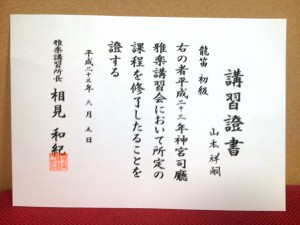 講習證書
龍笛 初級
山本祥嗣
右の者平成二十三年神宮司廳
雅楽講習会において所定の
課程を修了したることを
證する
平成二十三年 六月 五日
雅楽講習所長 相見 和紀